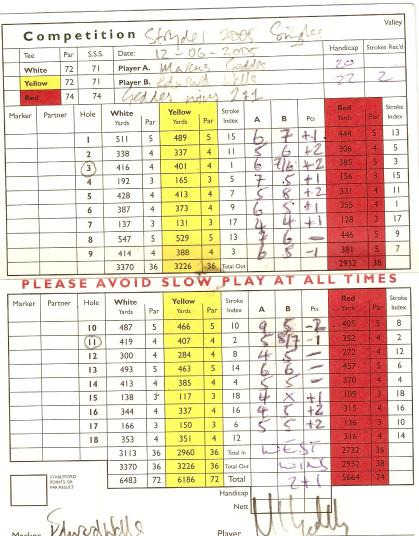 Valley
Competition Stryder 2005 Singles
Tee Par S.S.S. Date: 12-06-2005 Handicap Strokes Rec'd
White 72 71 Player A. Marcus Geddes 20
Yellow 72 71 Player B. Edward Wells 22 2
Red 74 74 Geddes wins 2+1
Marker Partner Hole White Yards Par Yellow Yards Par Stroke Index A B Pts Red Yards Par Stroke Index
1 511 5 489 5 15 6 7 +1 444 5 13
2 338 4 337 4 11 5 6 +2 306 4 5
3 416 4 401 4 1 6 7/6 +2 385 5 3
4 192 3 165 3 5 7 5 +1 156 3 15
5 428 4 413 4 7 5 8 +2 331 4 11
6 387 4 373 4 9 6 5 +1 355 4 1
7 137 3 131 3 17 4 4 +1 128 3 17
8 547 5 529 5 13 6 - 446 5 9
9 414 4 388 4 3 6 5 -1 381 5 7
3370 36 3226 36 Total Out 2932 38
PLEASE AVOID SLOW PLAY AT ALL TIMES
Marker Partner Hole White Yards Par Yellow Yards Par Stroke Index A B Pts Red Yards Par Stroke Index
10 487 5 466 5 10 9 5 -2 405 5 8
11 419 4 407 4 2 5 8/7 -1 352 4 2
12 300 4 284 4 8 4 5 - 272 4 12
13 493 5 463 5 14 6 6 - 457 5 6
14 413 4 385 4 4 5 5 - 370 4 4
15 138 3 117 3 18 4 X +1 109 3 18
16 344 4 337 4 16 4 5 +2 315 4 16
17 166 3 150 3 6 5 5 +2 136 3 10
18 353 4 351 4 12 316 4 14
3113 36 2960 36 Total In WEST 2732 36
3370 36 3226 36 Total Out WINS 2932 38
6483 72 6186 72 2+1 5664 74
STABLEFORD POINTS OR PAR RESULT
Handicap
Nett
Marker Edward Wells Player